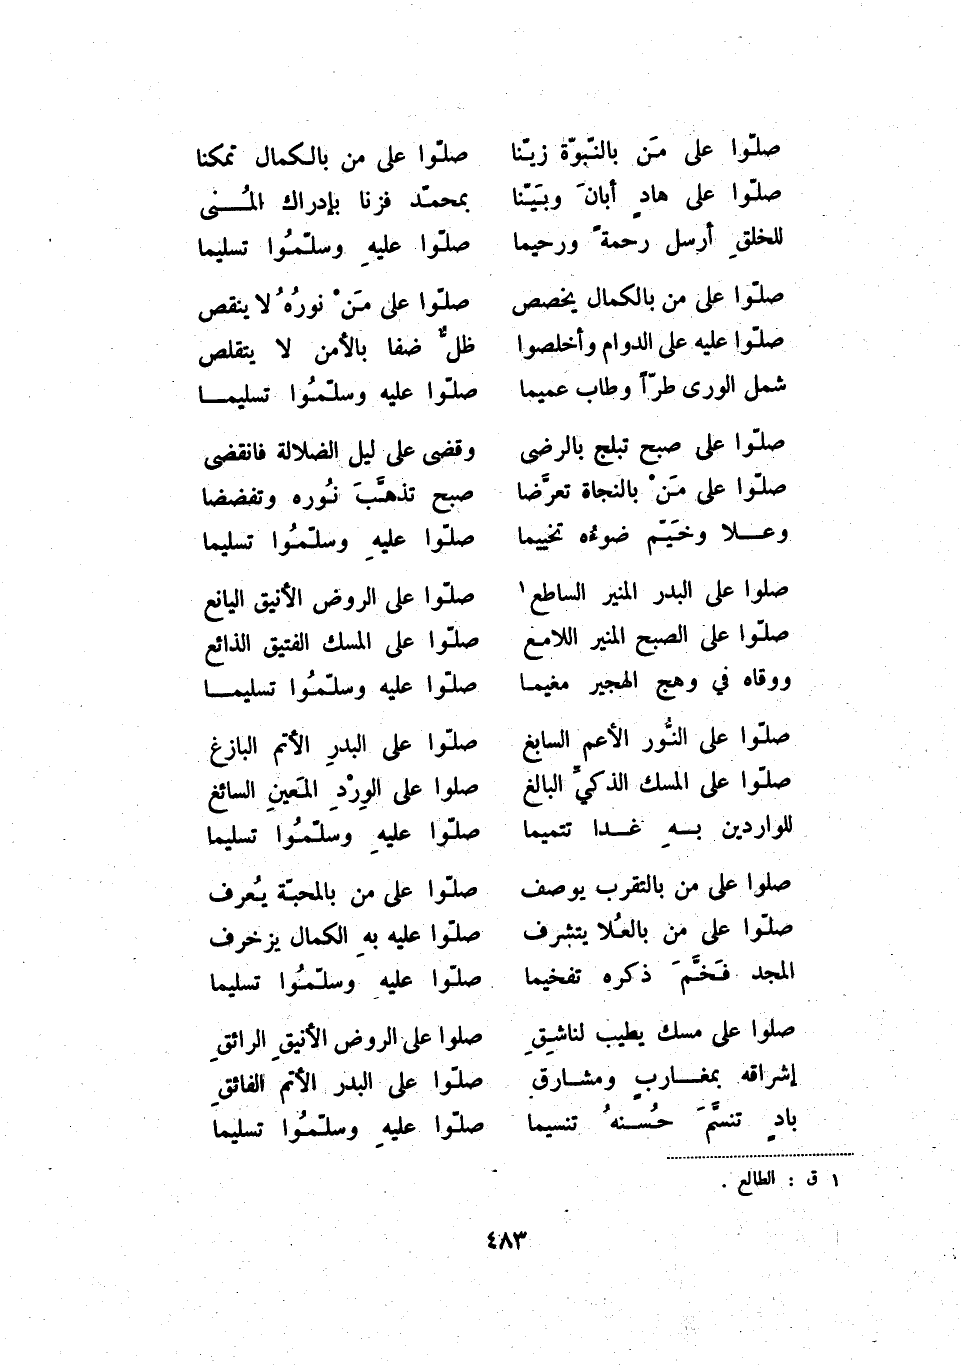 صلّوا على مَن بالنّبوّة زيّنا صلّوا على من بالكمال تمكنا
صلّوا على هادٍ أبانَ وبَيّنا بمحمّد فزنا بإدراك المُنى
للخلقِ أرسل رحمةً ورحيما صلّوا عليهِ وسلّمُوا تسليما
صلّوا على من بالكمال يخصص صلّوا على مَنْ نورُهُ لا ينقص
صلّوا عليه على الدوام وأخلصوا ظلٌّ ضفا بالأمن لا يتقلص
شمل الورى طرّاً وطاب عميما صلّوا عليه وسلّمُوا تسليما
صلّوا على صبح تبلج بالرضى وقضى على ليل الضلالة فانقضى
صلّوا على مَنْ بالنجاة تعرَّضا صبح تذهَّبَ نُوره وتفضضا
وعلا وخَيّم ضوءُه تخييما صلّوا عليهِ وسلّمُوا تسليما
صلوا على البدر المنير الساطع ١ صلّوا على الروض الأنيق اليانع
صلّوا على الصبح المنير اللامع صلّوا على المسك الفتيق الذائع
ووقاه في وهج الهجير مغيما صلّوا عليه وسلّمُوا تسليما
صلّوا على النُّور الأعم السابغ صلّوا على البدرِ الأتم البازغ
صلّوا على المسك الذكيِّ البالغ صلوا على الوِرْدِ المَعينِ السائغ
للواردين بهِ غدا تتميما صلّوا عليهِ وسلّمُوا تسليما
صلوا على من بالتقرب يوصف صلّوا على من بالمحبّة يُعرف
صلّوا على من بالعُلا يتشرف صلّوا عليه بهِ الكمال يزخرف
المجد فَخَّمَ ذكره تفخيما صلّوا عليهِ وسلّمُوا تسليما
صلوا على مسك يطيب لناشِقِ صلوا على الروض الأنيقِ الرائقِ
إشراقه بمغاربٍ ومشارقِ صلّوا على البدر الأتم الفائقِ
بادٍ تنسَّمَ حُسنهُ تنسيما صلّوا عليهِ وسلّمُوا تسليما
١ ق : الطالع .
٤٨٣